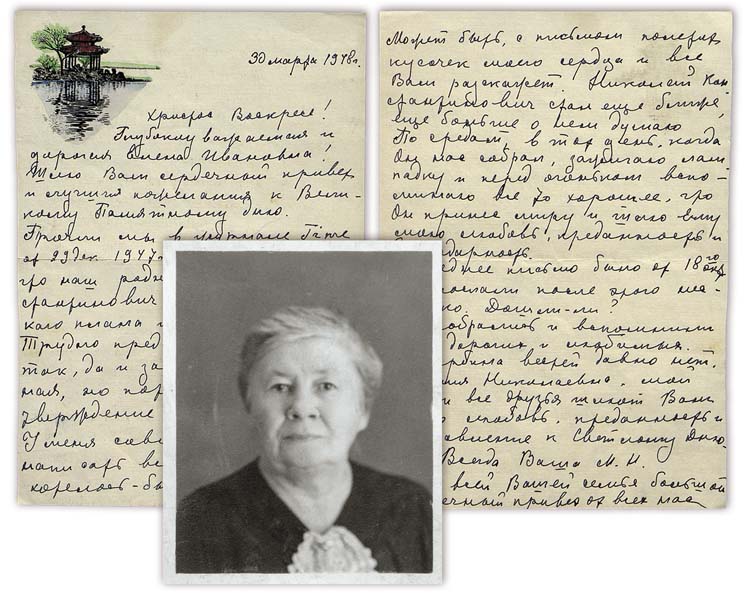 30 марта 1948 г.
Христос Воскресе!
Глубоко уважаемая и
дорогая Елена Ивановна!
Шлю Вам сердечный привет
и лучшия пожелания к Вели-
кому Памятному дню.
Прочли мы в журнале Time
от 29 дек. 1947
что наш
стантинович
каго плана
Трудно пред
так, да и за
мая, но пор
утверждение
У меня
мали
хотелось-бы
Может быть, с письмом полетит
кусочек моего сердца и все
Вам разскажет. Николай Кон-
стантинович стал еще ближе,
еще больше о нем думаю.
По средам, в тот день, когда
Он нас собрал, зажигаю лам-
падку и перед огоньком вспо-
минаю все то хорошее, что
Он принес миру и шлю ему
мою любовь, преданность и
дарность.
днее письмо было от 18го
послали после этого
ко. Дошли-ли?
обрались и вспоминали
дорогих и любимых.
вестей давно нет.
ия Николаевна, мой
и все друзья шлют Вам
любовь, преданность и
авление к Светлому Дню.
Всегда Ваша М. Н.
всей Вашей семье большой
ечный привет от всех нас